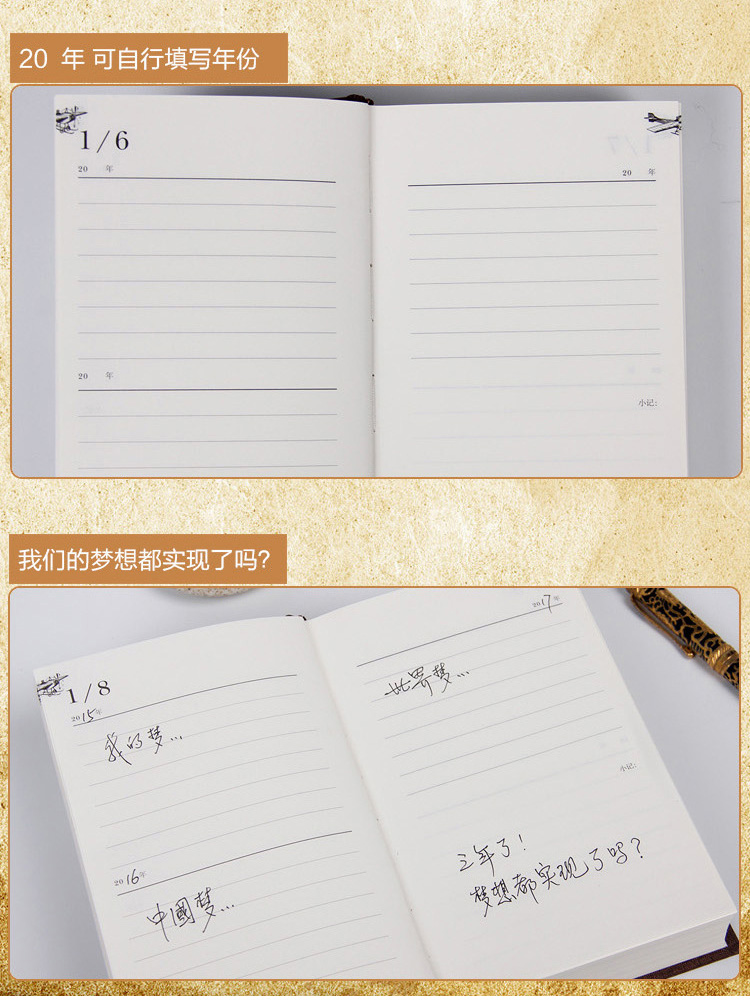 20 年 可自行填写年份
1/6
20 年
20 年
1/7
20 年
小记:
我们的梦想都实现了吗?
1/8
2015年
我的梦...
2016年
中國梦...
2017年
世界梦...
小记:
三年了!
梦想都实现了吗?